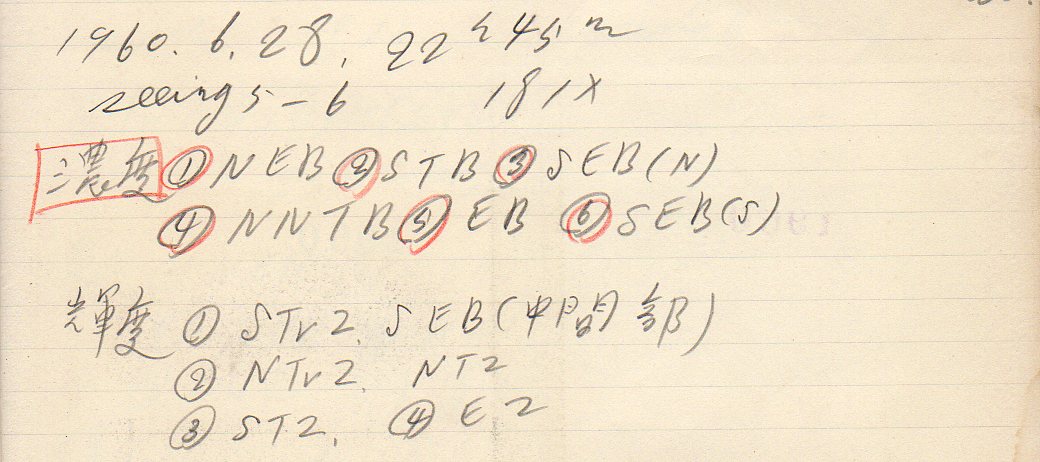 1960. 6. 28. 22h45m
seeing 5-6 181x
濃度 ① NEB ② STB ③ SEB(N)
④ NNTB ⑤ EB ⑥ SEB(S)
輝度 ① STrZ. SEB(中間部)
② NTrZ. NTZ
③ STZ. ④ EZ